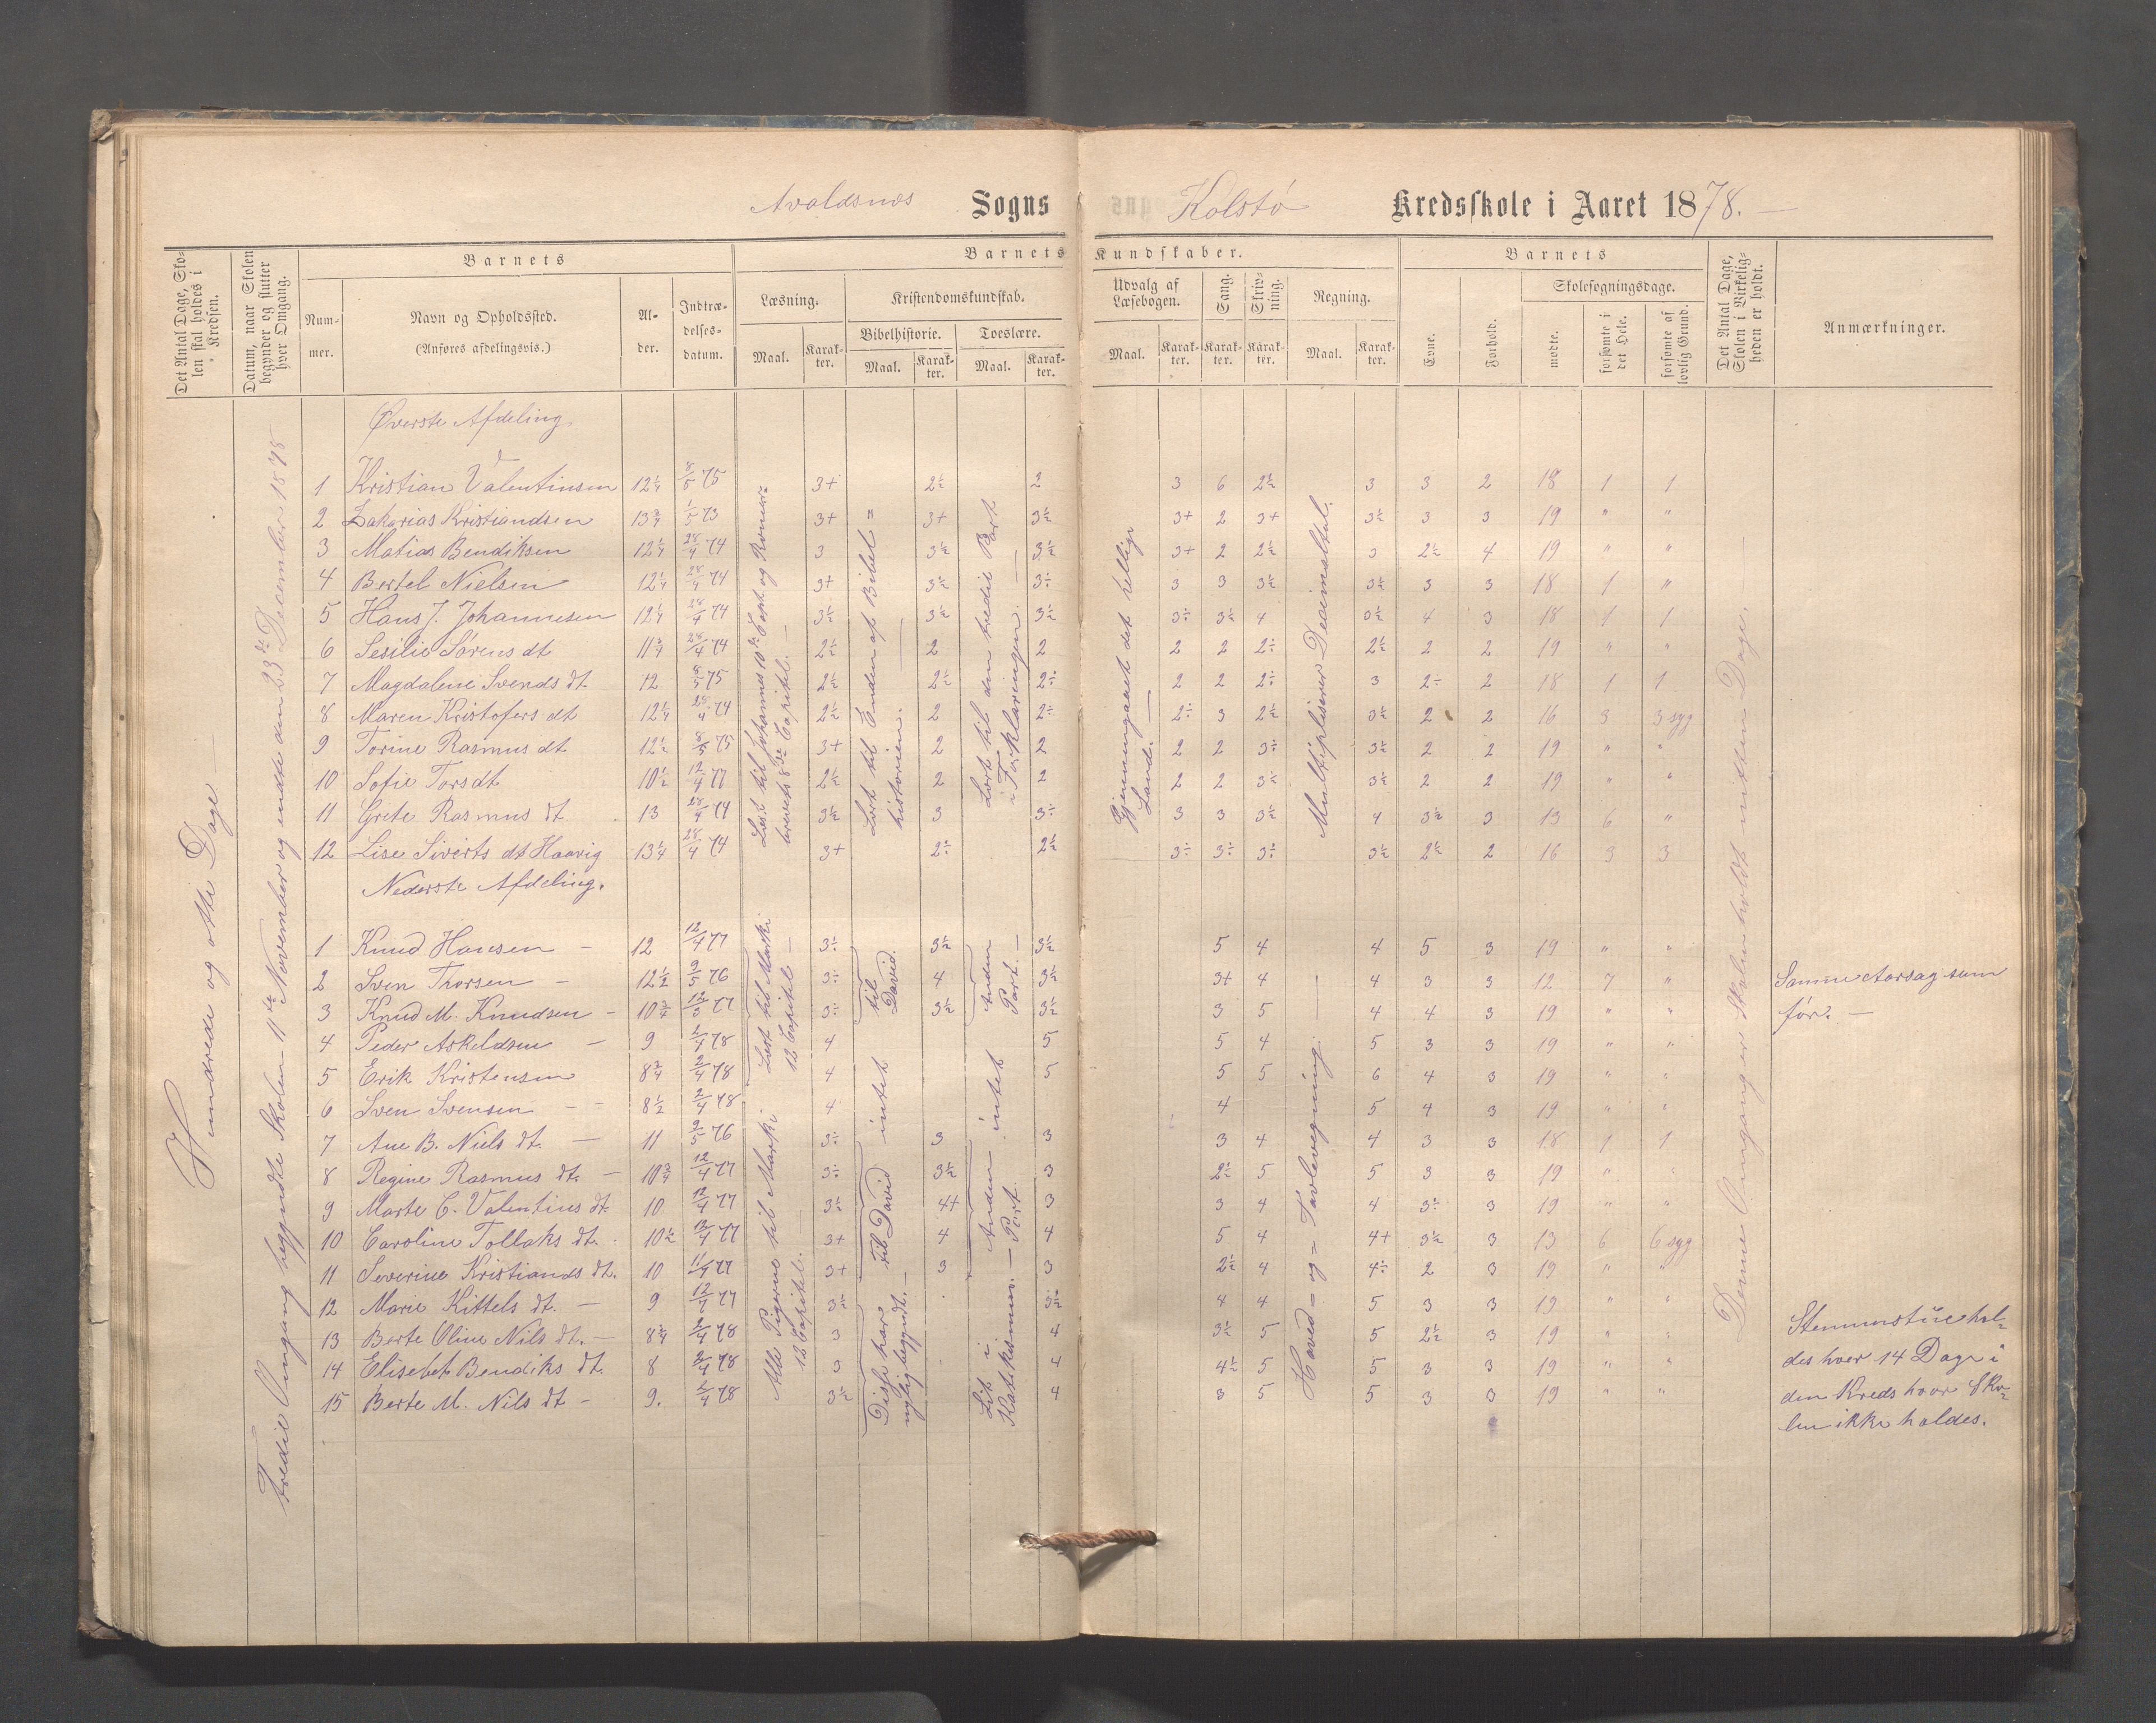 Avaldsnes Sogns Kolstø Kredsskole i Aaret 1878. —
Det Antal Dage, Skolen skal holdes i Kredsen.
Datum, naar Skolen begynder og slutter hver Omgang.
Barnets
Nummer.
Navn og Opholdssted.
(Anføres afdelingsvis.)
Alder.
Indtrædelsesdatum.
Barnets Kundskaber.
Læsning.
Maal.
Karakter.
Kristendomskundskab.
Bibelhistorie.
Maal.
Karakter.
Troeslære.
Maal.
Karakter.
Udvalg af Læsebogen.
Maal.
Karakter.
Sang.
Karakter.
Skrivning.
Karakter.
Regning.
Maal.
Karakter.
Barnets
Evne.
Forhold.
Skolesøgningsdage.
mødte.
forsømte i det Hele.
forsømte af lovlig Grund.
Det Antal Dage, Skolen i Virkeligheden er holdt.
Anmærkninger.
Hundrede og otte Dage —
Tredie Omgang begyndte Skolen 11te November og endte den 23de December 1878
Øverste Afdeling
1 Kristian Valentinsen 12 1/4 8/5 75 3+ 2½ 2 3 6 2½ 3 3 2 18 1 1
2 Zakarias Kristiandsen 13 3/4 1/5 73 3+ 3+ 3½ 3+ 2 3+ 3½ 3 3 19 " "
3 Matias Bendiksen 12 1/4 28/4 74 3 3½ 3½ 3+ 2 2½ 3 2½ 4 19 " "
4 Bertel Nielsen 12 1/4 28/4 74 3+ 3½ 3÷ 3 3 3½ 3½ 3 3 18 1 "
5 Hans J. Johannesen 12 1/4 28/4 74 3½ 3½ 3½ 3÷ 3½ 4 3½ 4 3 18 1 1
6 Sesilie Sørens dt 11 3/4 28/4 74 2½ 2 2 2 2 2÷ 2½ 2 2 19 " "
7 Magdalene Svends dt. 12 8/5 75 2½ 2½ 2÷ 2 2 2÷ 3 2÷ 2 18 1 1
8 Maren Kristofers dt 12 1/4 28/4 74 2½ 2 2÷ 2÷ 3 2½ 3½ 2 2 16 3 3 syg
9 Torine Rasmus dt 12½ 8/5 75 3+ 2 2 2 2 3÷ 3½ 2 2 19 " "
10 Sofie Tors dt 10½ 12/4 77 2½ 2 2 2 2 3½ 3½ 2 2 19 " "
11 Grete Rasmus dt. 13 28/4 74 3½ 3 3÷ 3 3 3½ 4 3½ 3 13 6 "
12 Lise Siverts dt Haavig 13 1/4 28/4 74 3+ 2÷ 2½ 3÷ 3÷ 3÷ 3½ 2½ 2 16 3 3
Læst til Johannes 10de Capt og Romerbrevets 8de Capitel. —
Lært til Enden af Bibelhistorien. —
Lært til den tredie Part i Forklaringen. —
Gjennemgaaet det hellige Land. —
Multipliserer Decimaltal.
Nederste Afdeling.
1 Knud Hansen — 12 12/4 77 3÷ 3½ 3½ 5 4 4 5 3 19 " "
2 Sven Thorsen — 12½ 9/5 76 3÷ 4 3½ 3+ 4 4 3 3 12 7 " Samme Aarsag som
3 Knud M. Knudsen — 10 3/4 12/5 77 3÷ 3½ 3½ 3 5 4 4 3 19 " " før. —
4 Peder Askeldsen — 9 2/4 78 4 5 5 4 5 3 3 19 " "
5 Erik Kristensen 8 3/4 2/4 78 4 5 5 5 6 4 3 19 " "
6 Sven Svensen — 8½ 2/4 78 4 4 5 4 3 19 " "
7 Ane B. Niels dt. — 11 9/5 76 3÷ 3 3 3 4 4 3 3 18 1 1
8 Regine Rasmus dt. — 10 3/4 12/4 77 3÷ 3½ 3 2½ 5 5 3 3 19 " "
9 Marte C. Valentins dt. 10 12/4 77 3½ 4+ 3 3 4 4 3÷ 3 19 " "
10 Caroline Tollaks dt. 10½ 12/4 77 3+ 4 4 5 4 4+ 3½ 3 13 6 6 syg
11 Severine Kristians dt. 10 11/4 77 3+ 3 3 2½ 4 4÷ 2 3 19 " "
12 Marie Kittels dt. — 9 12/4 77 3½ 3½ 4 4 5 3 3 19 " "
13 Berte Oline Nils dt. — 8 3/4 2/4 78 3 4 3½ 5 5 2½ 3 19 " "
14 Elisebet Bendiks dt. 8 2/4 78 3 4 4½ 5 5 3 3 19 " "
15 Berte M. Nils dt — 9. 2/4 78 3½ 4 3 5 5 3 3 19 " "
Læst til Marki 12 Capitel —
Alle Pigerne til Marki 12 Capitel. —
til David.
intet
til David
Disse har nylig begyndt. —
Anden Part. —
intet
Anden Part
Lært i Katekismus. —
Hoved= og = Tavleregning. —
Denne Omgang er Skolen holdt nitten Dage. —
Stemmestue hol=
des hver 14 Dage i
den Kreds hvor Sko=
len ikke holdes.